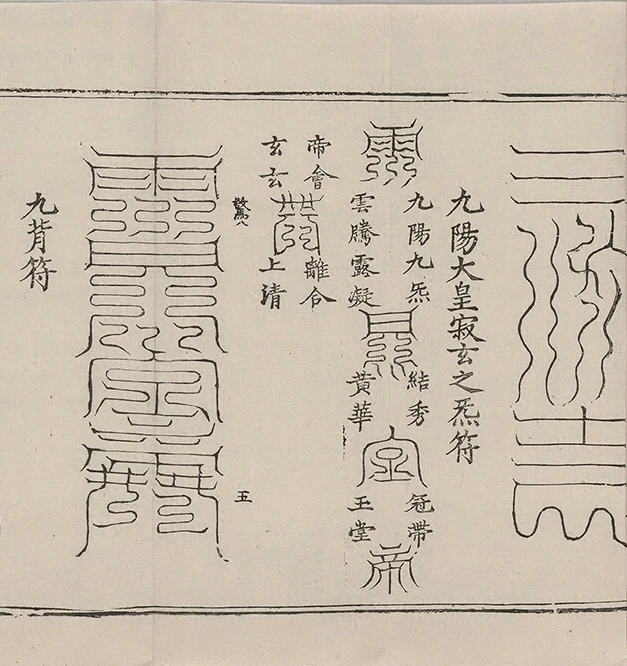 九陽大皇寂玄之炁符
九陽九炁
雲騰露凝
結秀
黃華
冠帶
玉堂
帝會
玄玄
離合
上清
驚八
五
九背符